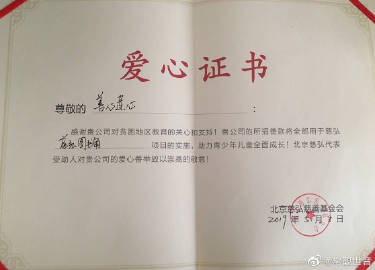 爱心证书
尊敬的 善心莲心 :
感谢贵公司对贫困地区教育的关心和支持！贵公司的所捐善款将全部用于慈弘
图书角 项目的实施，助力青少年儿童全面成长！北京慈弘代表
受助人对贵公司的爱心善举致以崇高的敬意！
北京慈弘慈善基金会
2019年5月1日